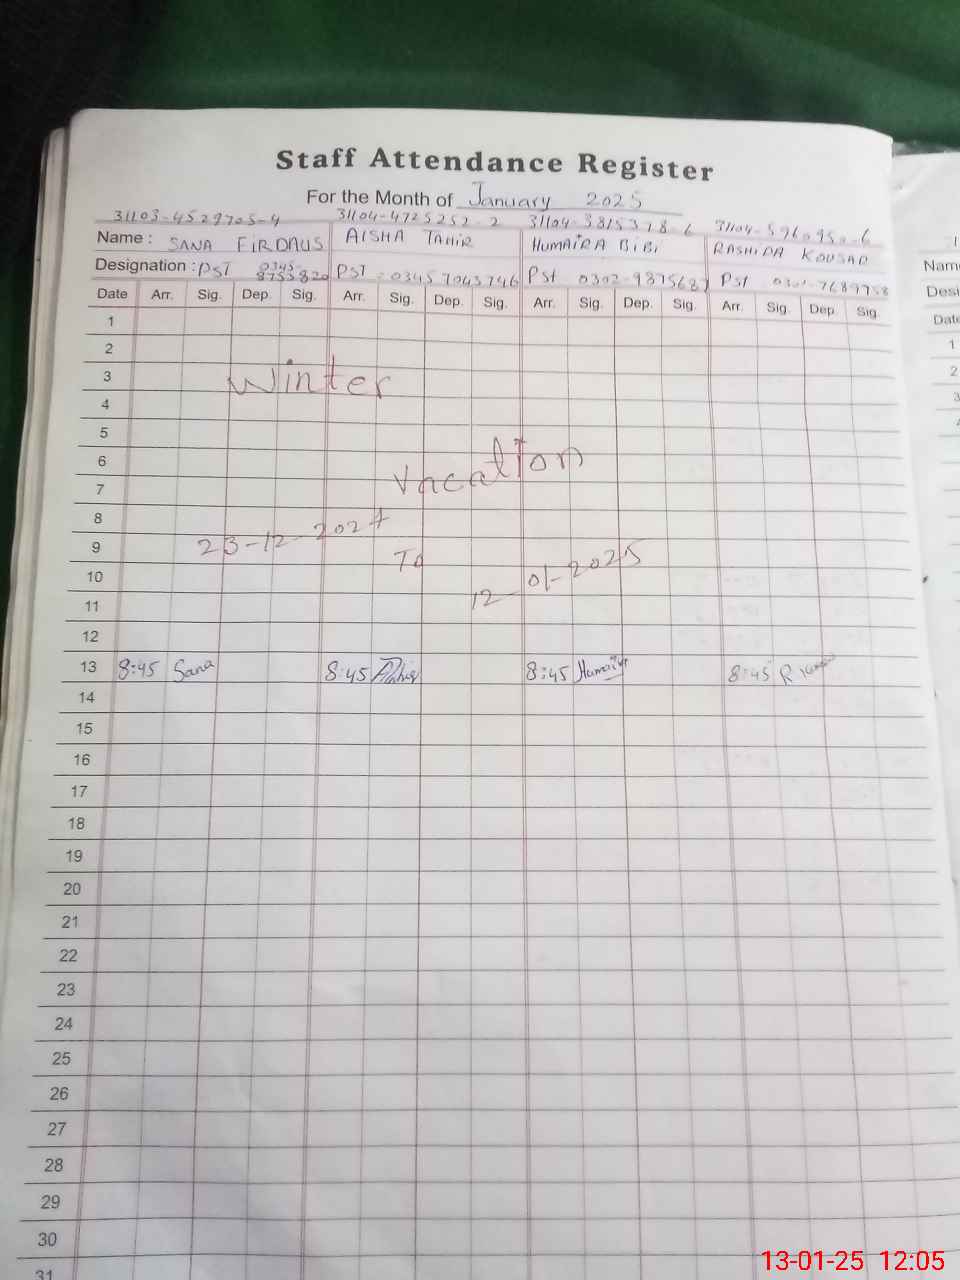 Staff Attendance Register
For the Month of January 2025
31103-4529705-4 31104-4725252-2 31104-3815378-6 31104-5960950-6
Name : SANA FIRDAUS AISHA TAHIR HUMAIRA BIBI RASHIDA KOUSAR
Designation : PST 0345-8755820 PST : 03457043746 Pst 0302-9375687 Pst 0301-7689758
Date Arr. Sig. Dep. Sig. Arr. Sig. Dep. Sig. Arr. Sig. Dep. Sig. Arr. Sig. Dep. Sig.
1
2
3
Winter
4
5
6
vacation
7
8
9
23-12-2024
To
10
12-01-2025
11
12
13 8:45 Sana 8:45 8:45 Humaira 8:45
14
15
16
17
18
19
20
21
22
23
24
25
26
27
28
29
30
31
Name
Desi
Date
1
2
3
13-01-25 12:05